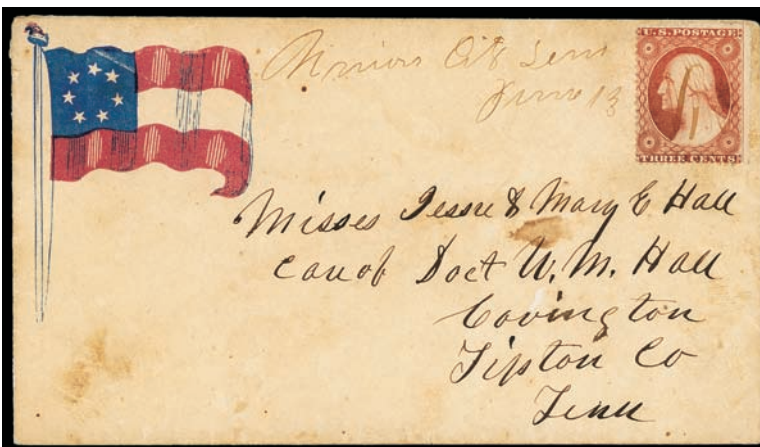 Union Cit Tenn
June 13
U.S. POSTAGE
THREE CENTS
Misses Jessie & Mary E Hall
Care of Doct W. M. Hall
Covington
Tipton Co
Tenn